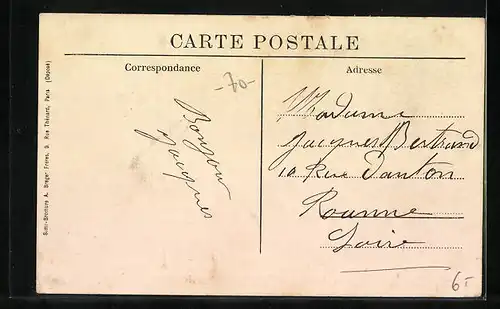 CARTE POSTALE
Correspondance
Adresse
-70-
Bonjour
Jacques
Madame
Jacques Bertrand
10 Rue Danton
Roanne
Loire
6-
Simi-Bromure A. Breger Frères, 9, Rue Thénard, Paris (Déposé)